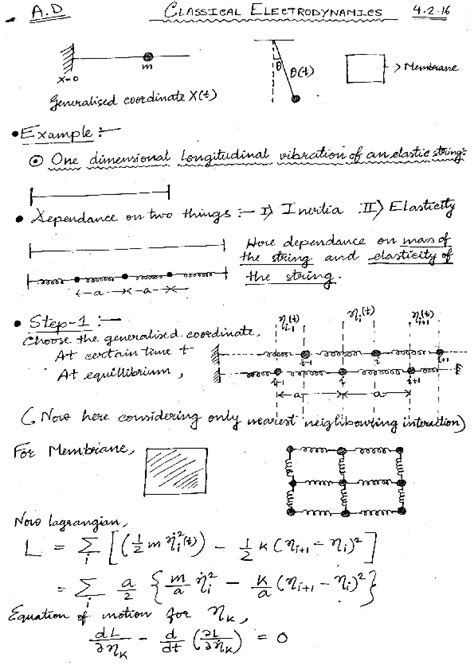 A.D CLASSICAL ELECTRODYNAMICS 4.2.16
x=0 m θ θ(t) → Membrane
Generalised coordinate X(t)
• Example :-
⊙ One dimensional longitudinal vibration of an elastic string:
• Dependance on two things :- I) Inertia II) Elasticity
Here dependance on mass of
the string and elasticity of
the string.
←a→←a→
• Step-1 :-
Choose the generalised coordinate,
At certain time t
At equillibrium,
η_{i-1}(t) η_i(t) η_{i+1}(t)
i-1 i i+1
i-1 i i+1
←a→←a→
(Now here considering only nearest neighbouring interaction)
For Membrane,
Now Lagrangian,
L = Σ_i [(1/2 m η̇_i²(t)) - 1/2 k (η_{i+1} - η_i)²]
= Σ_i a/2 {m/a η̇_i² - k/a (η_{i+1} - η_i)²}
Equation of motion for η_k,
dL/∂η_k - d/dt (∂L/∂η̇_k) = 0